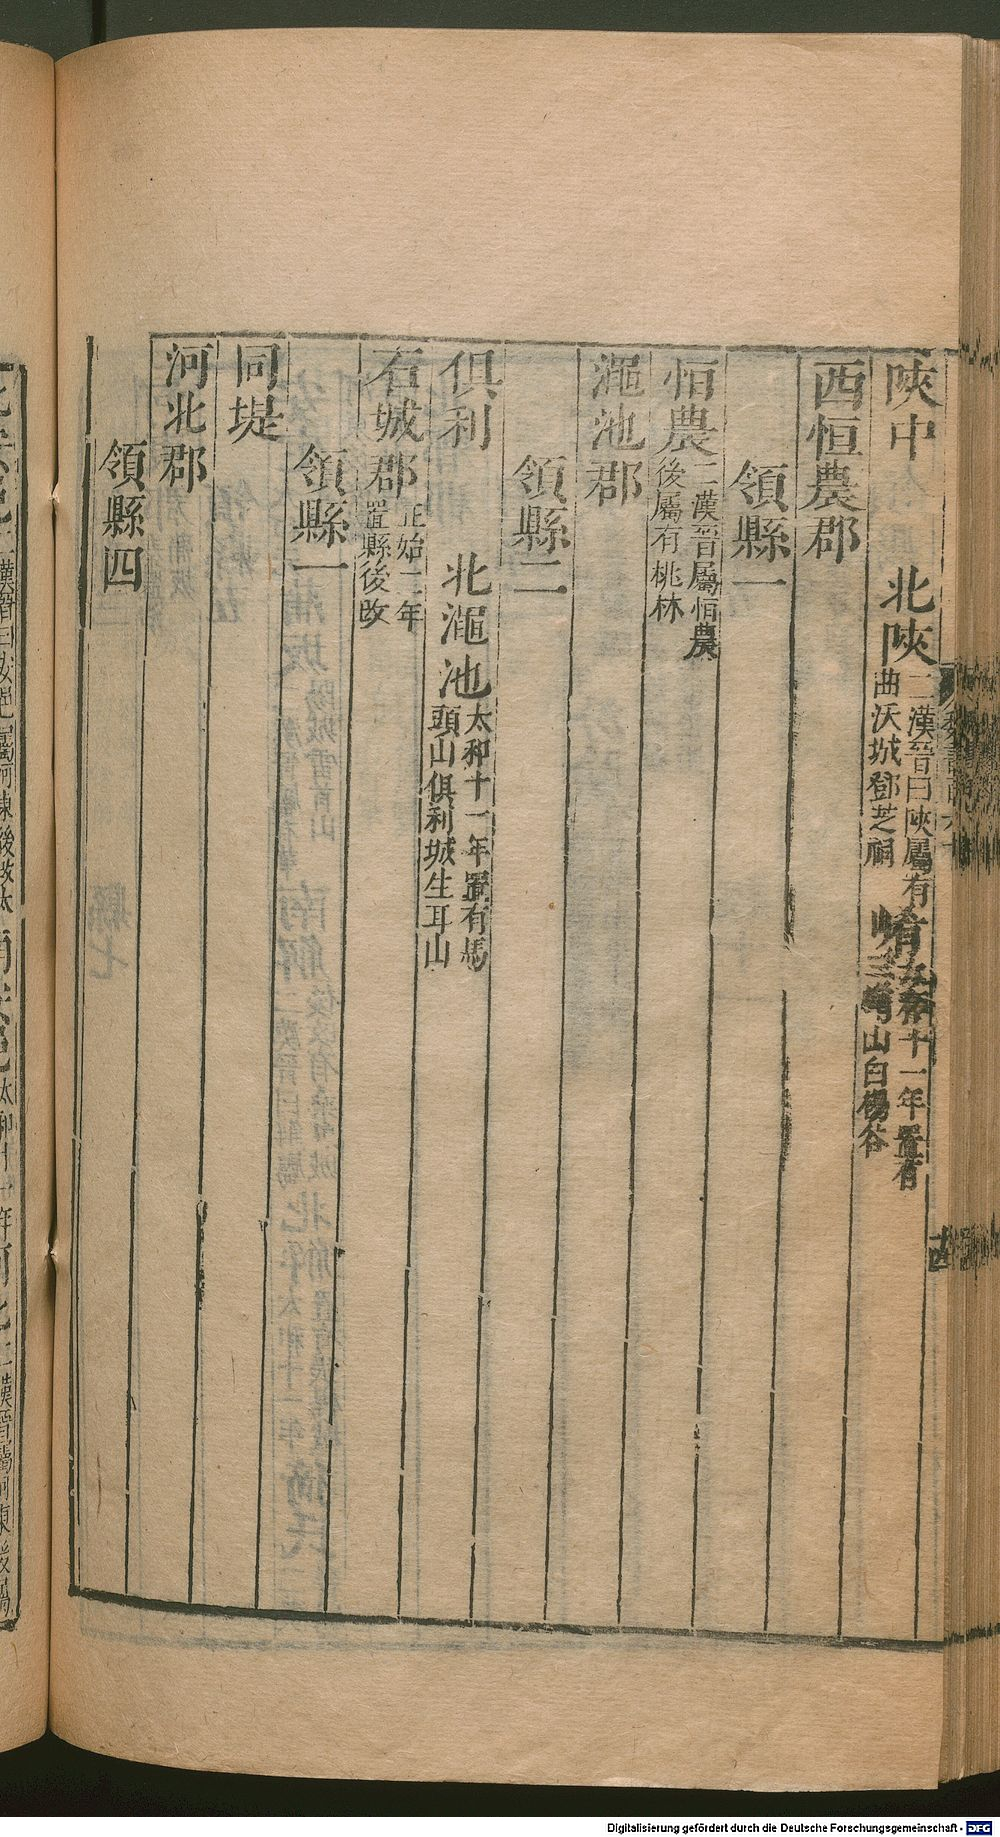 陜中　北陜二漢晉曰陜屬有曲沃城鄧芝祠　崤太和十一年置有三崤山白楊谷
西恒農郡
領縣一
恒農二漢晉屬恒農後屬有桃林
澠池郡
領縣二
俱利　北澠池太和十一年置有馬頭山俱利城生耳山
石城郡正始二年置縣後改
領縣一
同堤
河北郡
領縣四
Digitalisierung gefördert durch die Deutsche Forschungsgemeinschaft - DFG